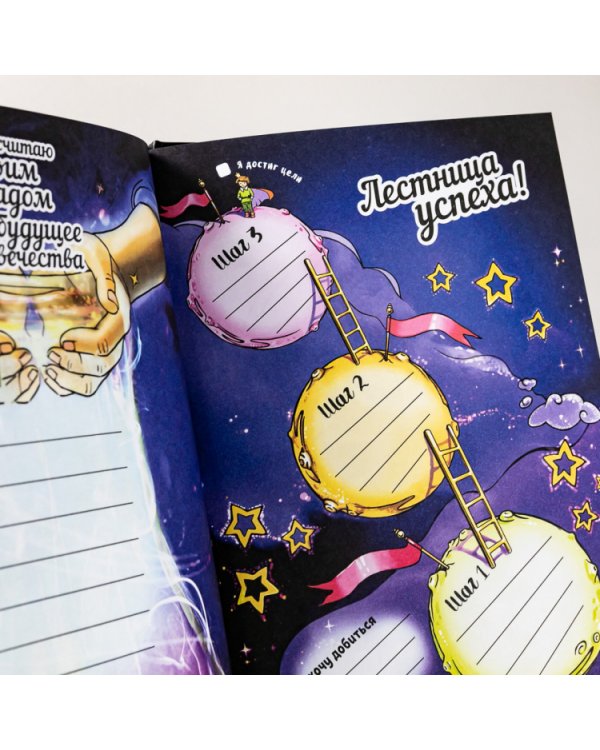 считаю
будущее
Я достиг цели
Лестница
успеха!
Шаг 3
Шаг 2
Шаг 1
хочу добиться